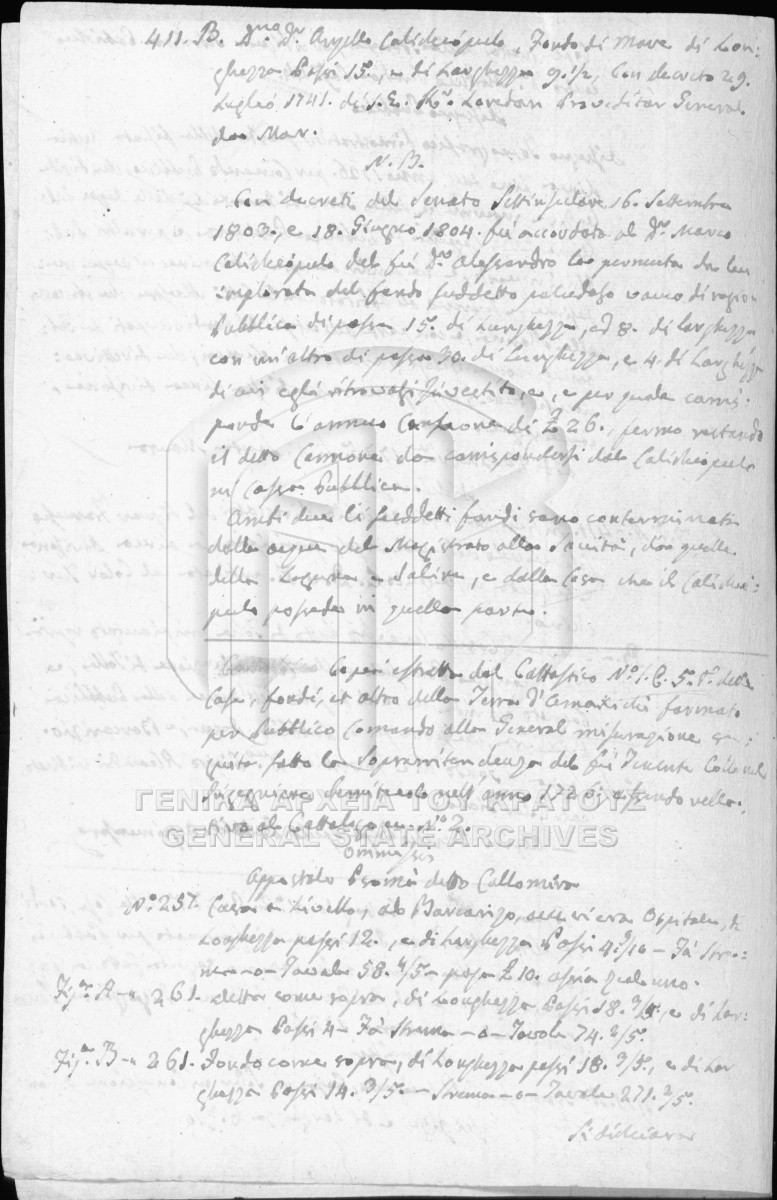 411. B. D.no D.r Angello Calichiópulo, Fondo di Mare di Lon:
ghezza Passi 15., e di Larghezza 9.1/2, Con decreto 29.
Luglio 1741. di S. E. K.r Loredan Proveditor General
da Mar.
N. B.
Con decreti del Senato Settinsulare 16. Settembre
1803., e 18. Giugno 1804. fú accordata al D.r Marco
Calichiópulo del fú D.r Alessandro la permuta da lui
implorata del fondo suddetto paludoso vacuo di ragion
Pubblica di passa 15. di Lunghezza, ed 8. di larghezza
con un'altro di passa 30. di Lunghezza, e 4. di Larghezza
di cui egli ritrovasi Investito, e per quale corris:
ponde l'annuo Canone di 26., fermo restando
il detto Cannone da corrispondersi dal Calichiopulo
in Cassa Pubblica.
Ambi due li suddetti fondi sono conterminati
dalle acque del Magistrato alla Sanità, da quelle
della Laguna e Saline, e dalla Casa che il Calichió:
pulo possede in quella parte.
Copia estratta dal Cattastico N.o 1. C. 5.o T.o delle
Case, fondi, et altro della Terra d'Amaxichi formato
per Pubblico Comando alla General misuragione se:
guita sotto la Sopraintendenza del fú Tenente Collonel
Ingegniere nell'anno 1726. essendo
al Cattalogo N.o 2.
ommissis
Appostolo Psomà detto Callomiro
N.o 257. Casa a Livello, al Barcarizo, ove vi era Ospitale, di
Longhezza passi 12., e di Larghezza Passi 4.9/10 – Fà Strem:
ma – o – Tavole 58.4/5 – paga 10. aspri
Fig.a A – 261. detta come sopra, di Longhezza Passi 18.3/5, e di Lar:
ghezza Passi 4 – Fà Stremma – o – Tavole 74.2/5.
Fig.a B – 261. Fondo come sopra, di Longhezza passi 18.3/5., e di Lar
ghezza Passi 14.3/5. – Stremma – o – Tavole 271.2/5.
Si dichiara
ΓΕΝΙΚΑ ΑΡΧΕΙΑ ΤΟΥ ΚΡΑΤΟΥΣ
GENERAL STATE ARCHIVES